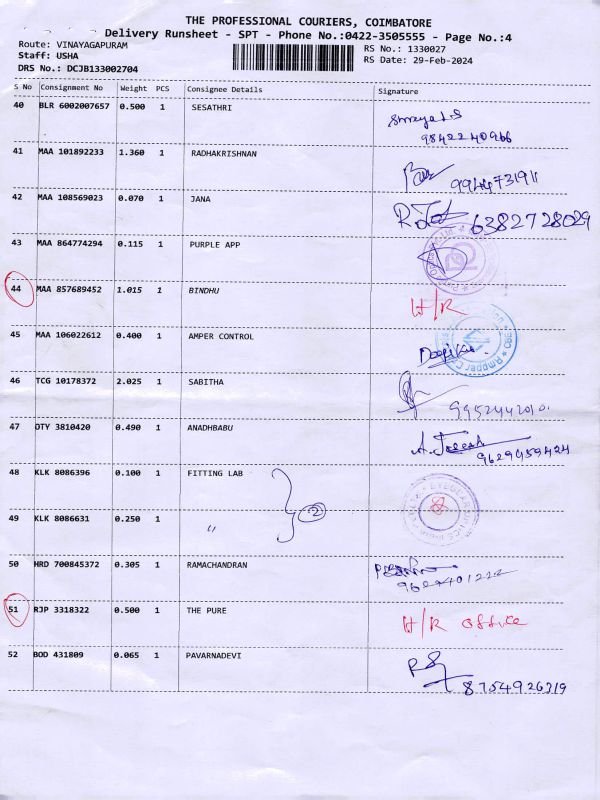 THE PROFESSIONAL COURIERS, COIMBATORE
Delivery Runsheet - SPT - Phone No.:0422-3505555 - Page No.:4
Route: VINAYAGAPURAM
RS No.: 1330027
Staff: USHA
RS Date: 29-Feb-2024
DRS No.: DCJB133002704
S No Consignment No Weight PCS Consignee Details Signature
40 BLR 6002007657 0.500 1 SESATHRI
9842240966
41 MAA 101892233 1.360 1 RADHAKRISHNAN
9944731911
42 MAA 108569023 0.070 1 JANA
6382728029
43 MAA 864774294 0.115 1 PURPLE APP
44 MAA 857689452 1.015 1 BINDHU H/R
45 MAA 106022612 0.400 1 AMPER CONTROL
46 TCG 10178372 2.025 1 SABITHA
47 OTY 3810420 0.490 1 ANADHBABU
9629459424
48 KLK 8086396 0.100 1 FITTING LAB
2
49 KLK 8086631 0.250 1 "
50 HRD 700845372 0.305 1 RAMACHANDRAN
51 RJP 3318322 0.500 1 THE PURE H/R office
52 BOD 431809 0.065 1 PAVARNADEVI
8754926319